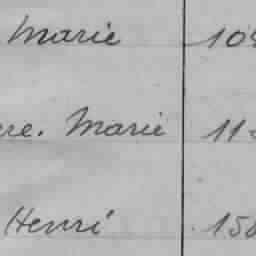 Marie 109
re. Marie 11
Henri 150